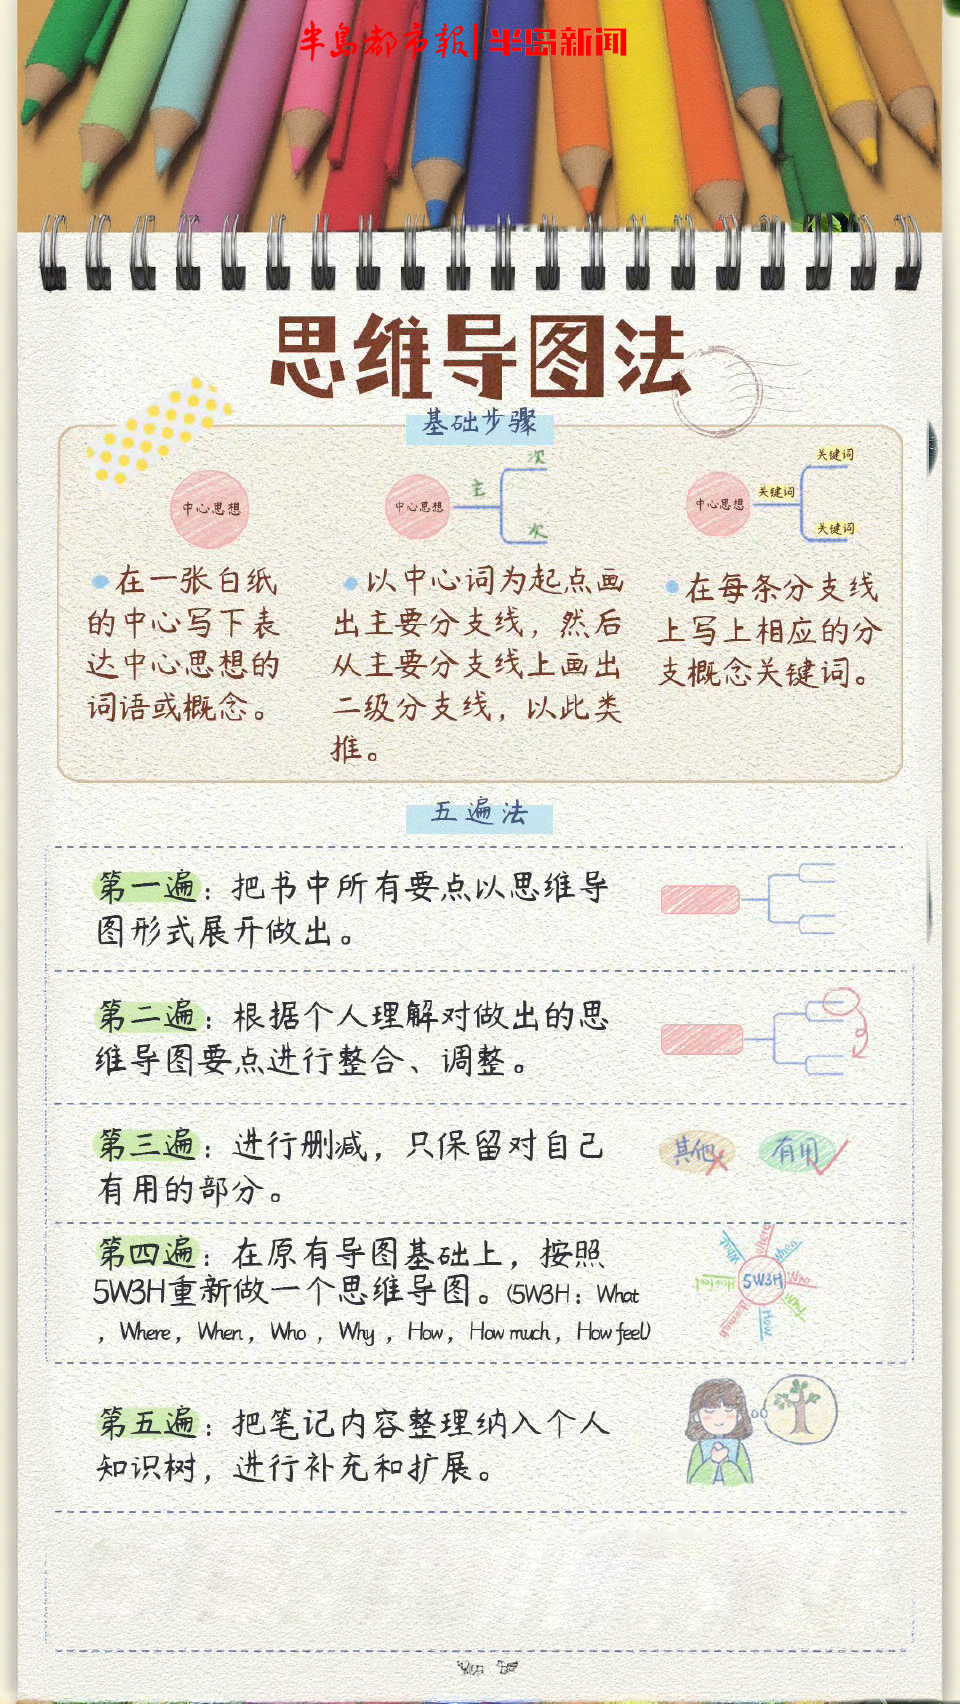 半島都市報|半岛新闻
思维导图法
基础步骤
中心思想
中心思想
主
次
次
中心思想
关键词
关键词
关键词
在一张白纸
的中心写下表
达中心思想的
词语或概念。
以中心词为起点画
出主要分支线，然后
从主要分支线上画出
二级分支线，以此类
推。
在每条分支线
上写上相应的分
支概念关键词。
五遍法
第一遍：把书中所有要点以思维导
图形式展开做出。
第二遍：根据个人理解对做出的思
维导图要点进行整合、调整。
第三遍：进行删减，只保留对自己
有用的部分。
其他
有用
第四遍：在原有导图基础上，按照
5W3H重新做一个思维导图。(5W3H：What
，Where，When，Who，Why，How，How much，How feel)
5W3H
What
Where
When
Who
Why
How
How much
How feel
第五遍：把笔记内容整理纳入个人
知识树，进行补充和扩展。